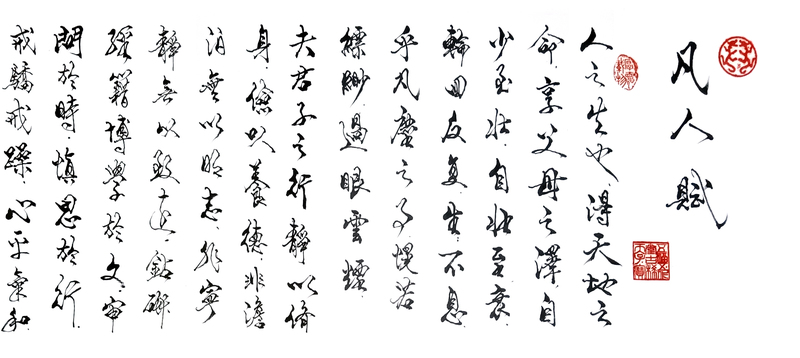 凡人賦
人之生也得天地之
命享父母之澤自
少至壯自壯至衰
輪回反复生不息
乎凡塵之事恍若
縹緲過眼雲煙
夫君子之行靜以脩
身儉以養德非澹
泊無以明志非寧
靜無以致遠鉆研
經籍博學於文審
問於時慎思於行
戒驕戒躁心平氣和